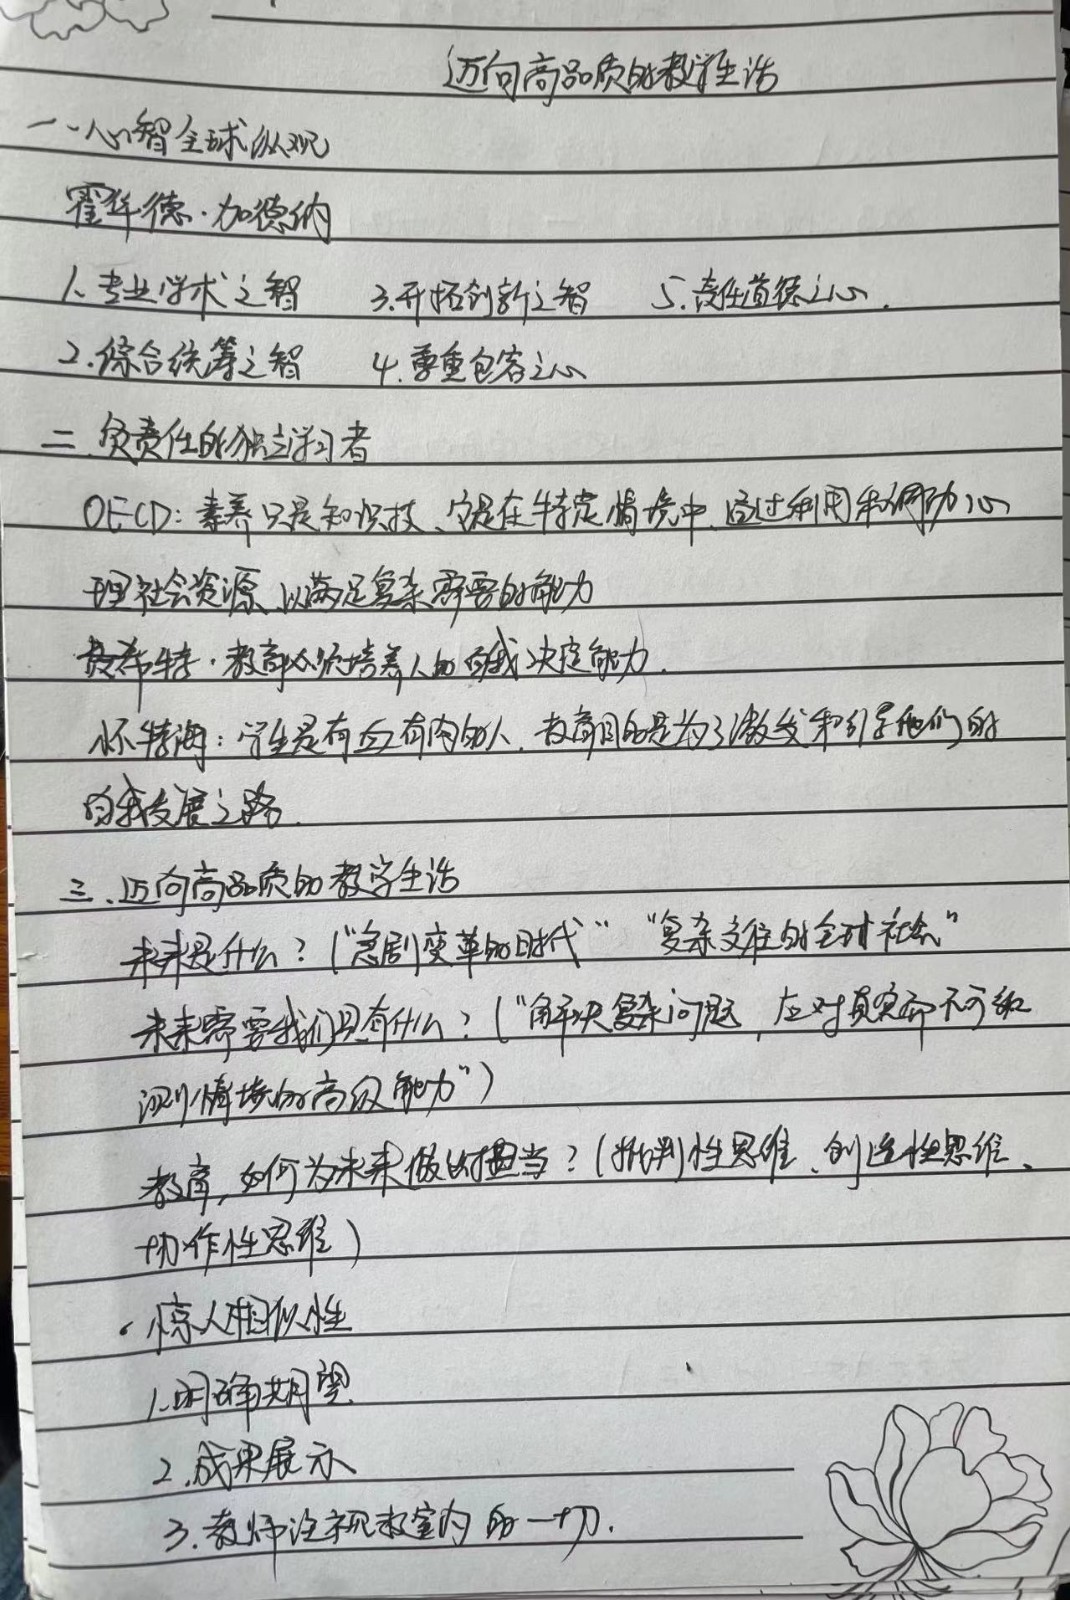 迈向高品质的教学生活
一、心智全球纵观
霍华德·加德纳
1、专业学术之智 3.开拓创新之智 5.责任道德之心.
2.综合统筹之智 4.尊重包容之心
二、负责任的独立学习者
OECD:素养只是知识技、它是在特定情境中、通过利用和调动心
理社会资源、以满足复杂需要的能力
费希特·教育必须培养人的自我决定能力.
怀特海:学生是有血有肉的人、教育目的是为了激发和引导他们的
自我发展之路.
三、迈向高品质的教学生活
未来是什么?("急剧变革的时代" "复杂交往的全球社会"
未来需要我们具有什么?("解决复杂问题,应对真实而不可预
测情境的高级能力")
教育,如何为未来做好担当?(批判性思维、创造性思维、
协作性思维)
·惊人相似性
1.明确期望.
2.成果展示
3.教师注视教室内的一切.